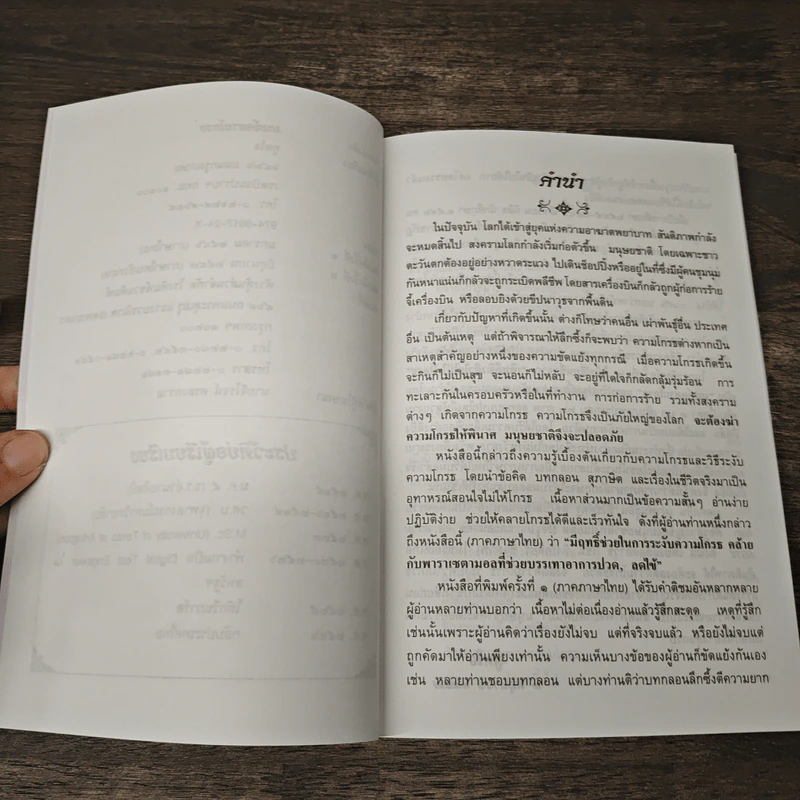 คำนำ
ในปัจจุบัน โลกได้เข้าสู่ยุคแห่งความอาฆาตพยาบาท สันติภาพกำลัง
จะหมดสิ้นไป สงครามโลกกำลังเริ่มก่อตัวขึ้น มนุษยชาติ โดยเฉพาะชาว
ตะวันตกต้องอยู่อย่างหวาดระแวง ไปเดินช็อปปิ้งหรืออยู่ในที่ซึ่งมีผู้คนชุมนุม
กันหนาแน่นก็กลัวจะถูกระเบิดพลีชีพ โดยสารเครื่องบินก็กลัวถูกผู้ก่อการร้าย
จี้เครื่องบิน หรือลอบยิงด้วยขีปนาวุธจากพื้นดิน
เกี่ยวกับปัญหาที่เกิดขึ้นนั้น ต่างก็โทษว่าคนอื่น เผ่าพันธุ์อื่น ประเทศ
อื่น เป็นต้นเหตุ แต่ถ้าพิจารณาให้ลึกซึ้งก็จะพบว่า ความโกรธต่างหากเป็น
สาเหตุสำคัญอย่างหนึ่งของความขัดแย้งทุกกรณี เมื่อความโกรธเกิดขึ้น
จะกินก็ไม่เป็นสุข จะนอนก็ไม่หลับ จะอยู่ที่ใดใจก็กลัดกลุ้มรุ่มร้อน การ
ทะเลาะกันในครอบครัวหรือในที่ทำงาน การก่อการร้าย รวมทั้งสงคราม
ต่างๆ เกิดจากความโกรธ ความโกรธจึงเป็นภัยใหญ่ของโลก จะต้องฆ่า
ความโกรธให้พินาศ มนุษยชาติจึงจะปลอดภัย
หนังสือนี้กล่าวถึงความรู้เบื้องต้นเกี่ยวกับความโกรธและวิธีระงับ
ความโกรธ โดยนำข้อคิด บทกลอน สุภาษิต และเรื่องในชีวิตจริงมาเป็น
อุทาหรณ์สอนใจไม่ให้โกรธ เนื้อหาส่วนมากเป็นข้อความสั้นๆ อ่านง่าย
ปฏิบัติง่าย ช่วยให้คลายโกรธได้ดีและเร็วทันใจ ดังที่ผู้อ่านท่านหนึ่งกล่าว
ถึงหนังสือนี้ (ภาคภาษาไทย) ว่า "มีฤทธิ์ช่วยในการระงับความโกรธ คล้าย
กับพาราเซตามอลที่ช่วยบรรเทาอาการปวด, ลดไข้"
หนังสือที่พิมพ์ครั้งที่ ๑ (ภาคภาษาไทย) ได้รับคำติชมอันหลากหลาย
ผู้อ่านหลายท่านบอกว่า เนื้อหาไม่ต่อเนื่องอ่านแล้วรู้สึกสะดุด เหตุที่รู้สึก
เช่นนั้นเพราะผู้อ่านคิดว่าเรื่องยังไม่จบ แต่ที่จริงจบแล้ว หรือยังไม่จบแต่
ถูกคัดมาให้อ่านเพียงเท่านั้น ความเห็นบางข้อของผู้อ่านก็ขัดแย้งกันเอง
เช่น หลายท่านชอบบทกลอน แต่บางท่านติว่าบทกลอนลึกซึ้งตีความยาก